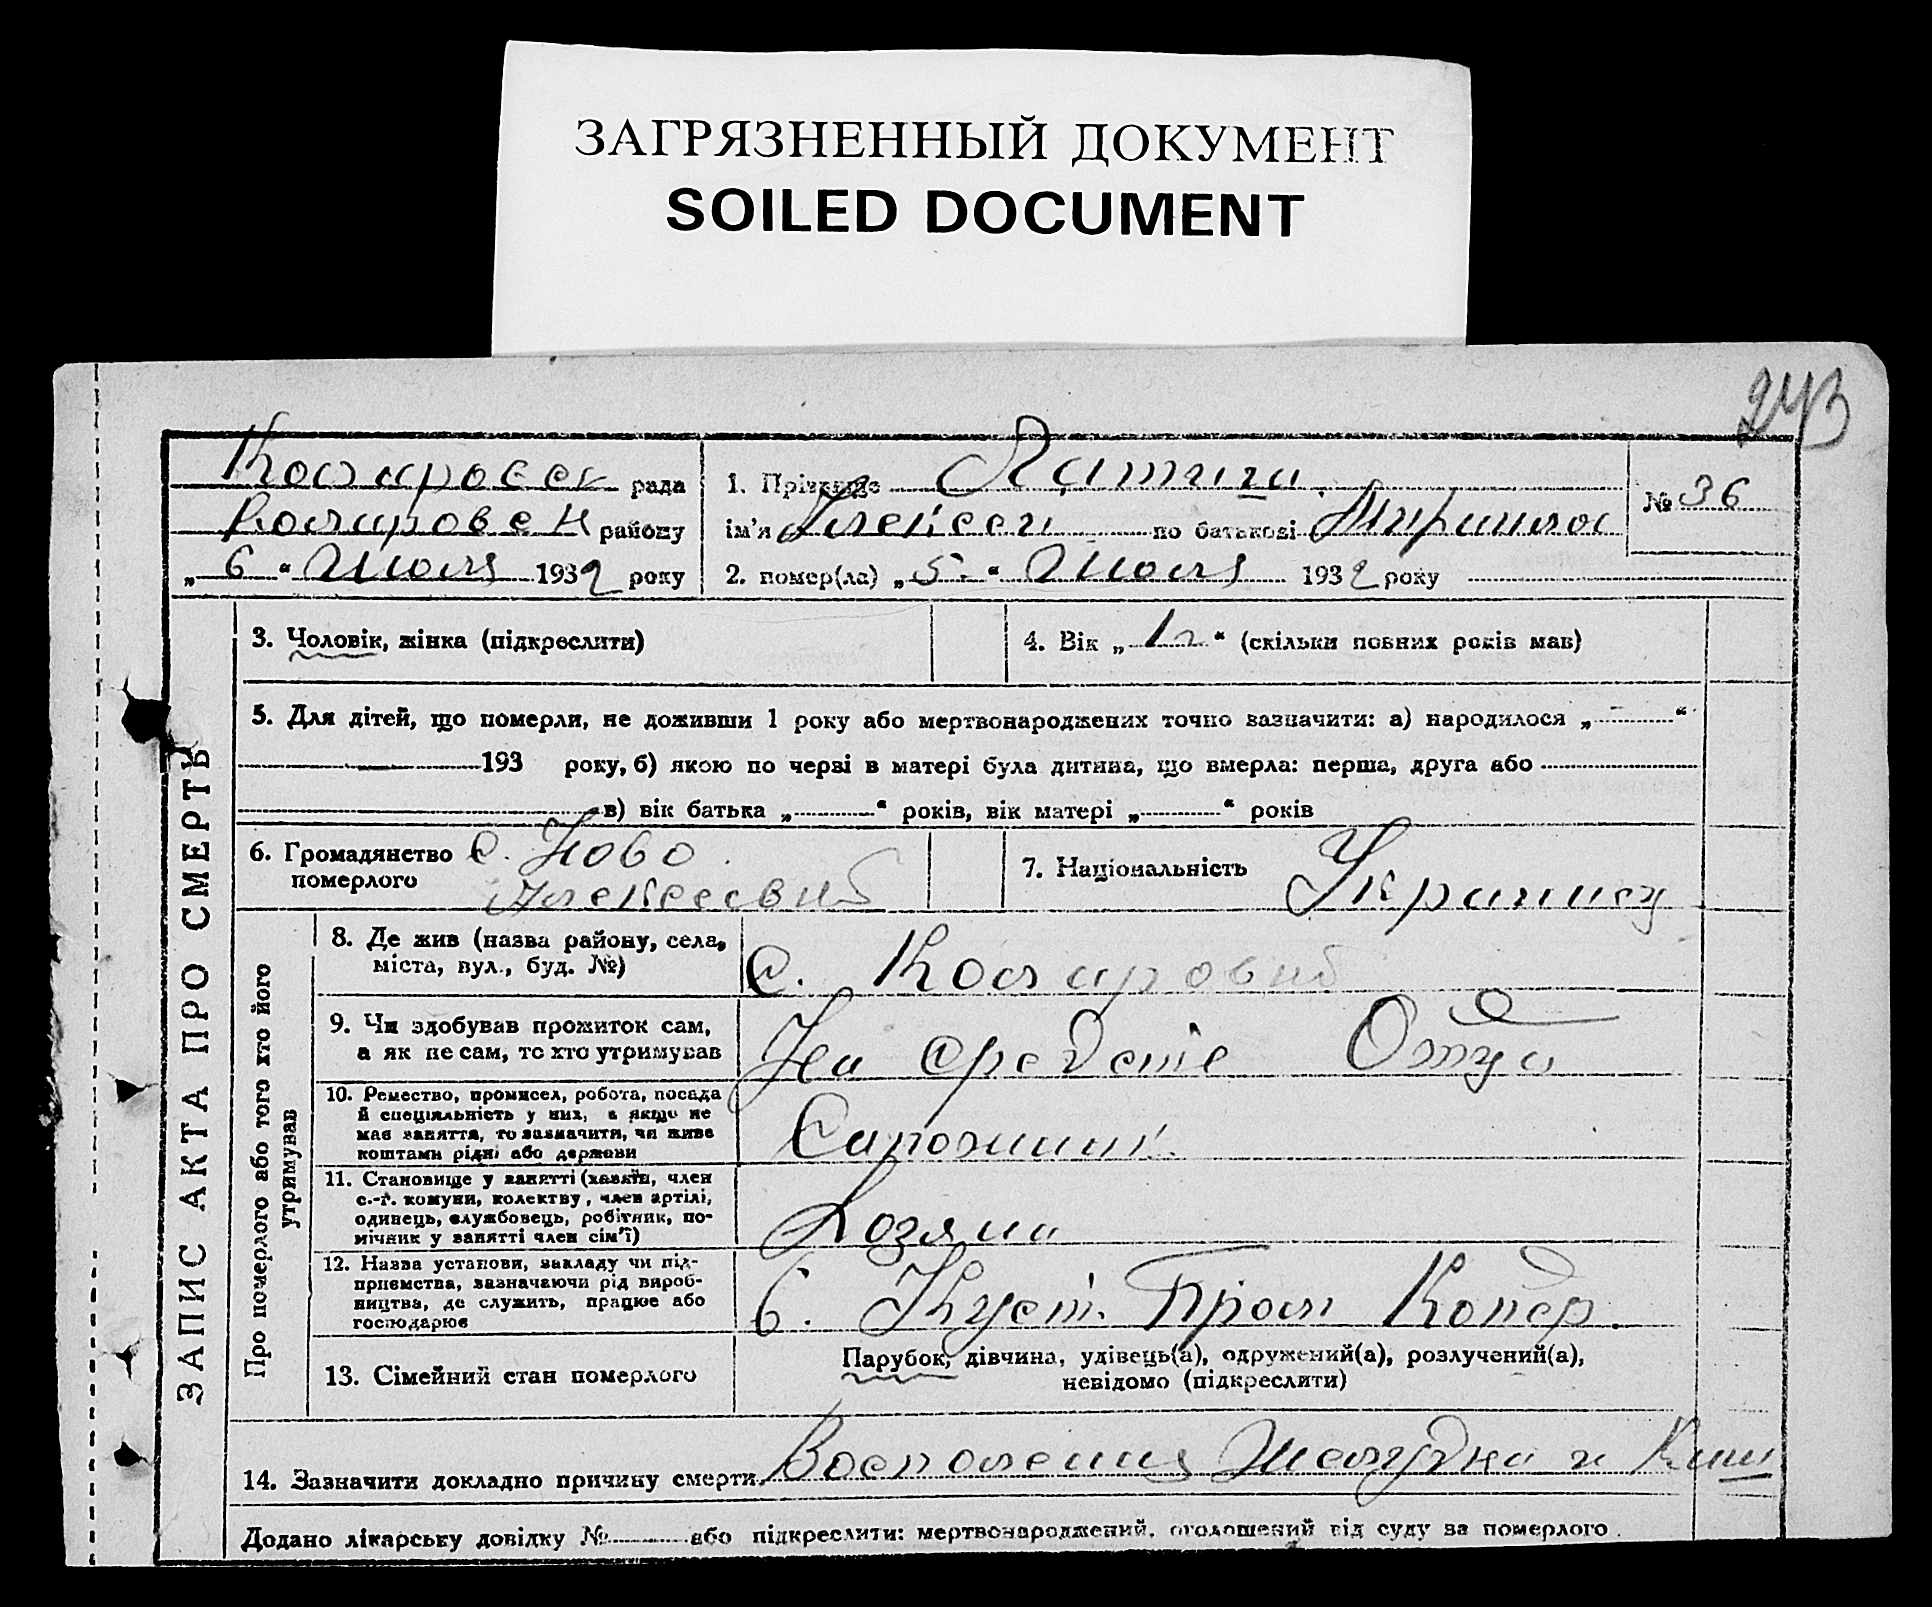 ЗАГРЯЗНЕННЫЙ ДОКУМЕНТ
SOILED DOCUMENT
243
рада
району
„ 6 “ Июля 1932 року
1. Прізвище
ім'я Алексей по батькові
2. помер(ла) „ 5 “ Июля 1932 року
№ 36
ЗАПИС АКТА ПРО СМЕРТЬ
3. Чоловік, жінка (підкреслити)
4. Вік „ 1 г “ (скільки повних років мав)
5. Для дітей, що померли, не доживши 1 року або мертвонароджених точно зазначити: а) народилося „ “
193 року, б) якою по черзі в матері була дитина, що вмерла: перша, друга або
в) вік батька „ “ років, вік матері „ “ років
6. Громадянство с. Ново
померлого Алексеевкі
7. Національність Украинец
Про померлого або того хто його
утримував
8. Де жив (назва району, села,
міста, вул., буд. №)
с.
9. Чи здобував прожиток сам,
а як не сам, то хто утримував
На средств Отца
10. Ремество, промисел, робота, посада
й спеціяльність у них, а якщо не
має заняття, то зазначити, чи живе
коштами рідні або держави
Сапожник
11. Становище у занятті (хазяїн, член
с.-г. комуни, колектву, член артілі,
одинець, службовець, робітник, по-
мічник у занятті член сім'ї)
12. Назва установи, закладу чи під-
приємства, зазначаючи рід вироб-
ництва, де служить, працює або
господарює
в. Куст. Пром Копер.
13. Сімейний стан померлого
Парубок, дівчина, удівець(а), одружений(а), розлучений(а),
невідомо (підкреслити)
14. Зазначити докладно причину смерти Воспаления Желудка и Киш
Додано лікарську довідку № або підкреслити: мертвонароджений, оголошений від суду за померлого